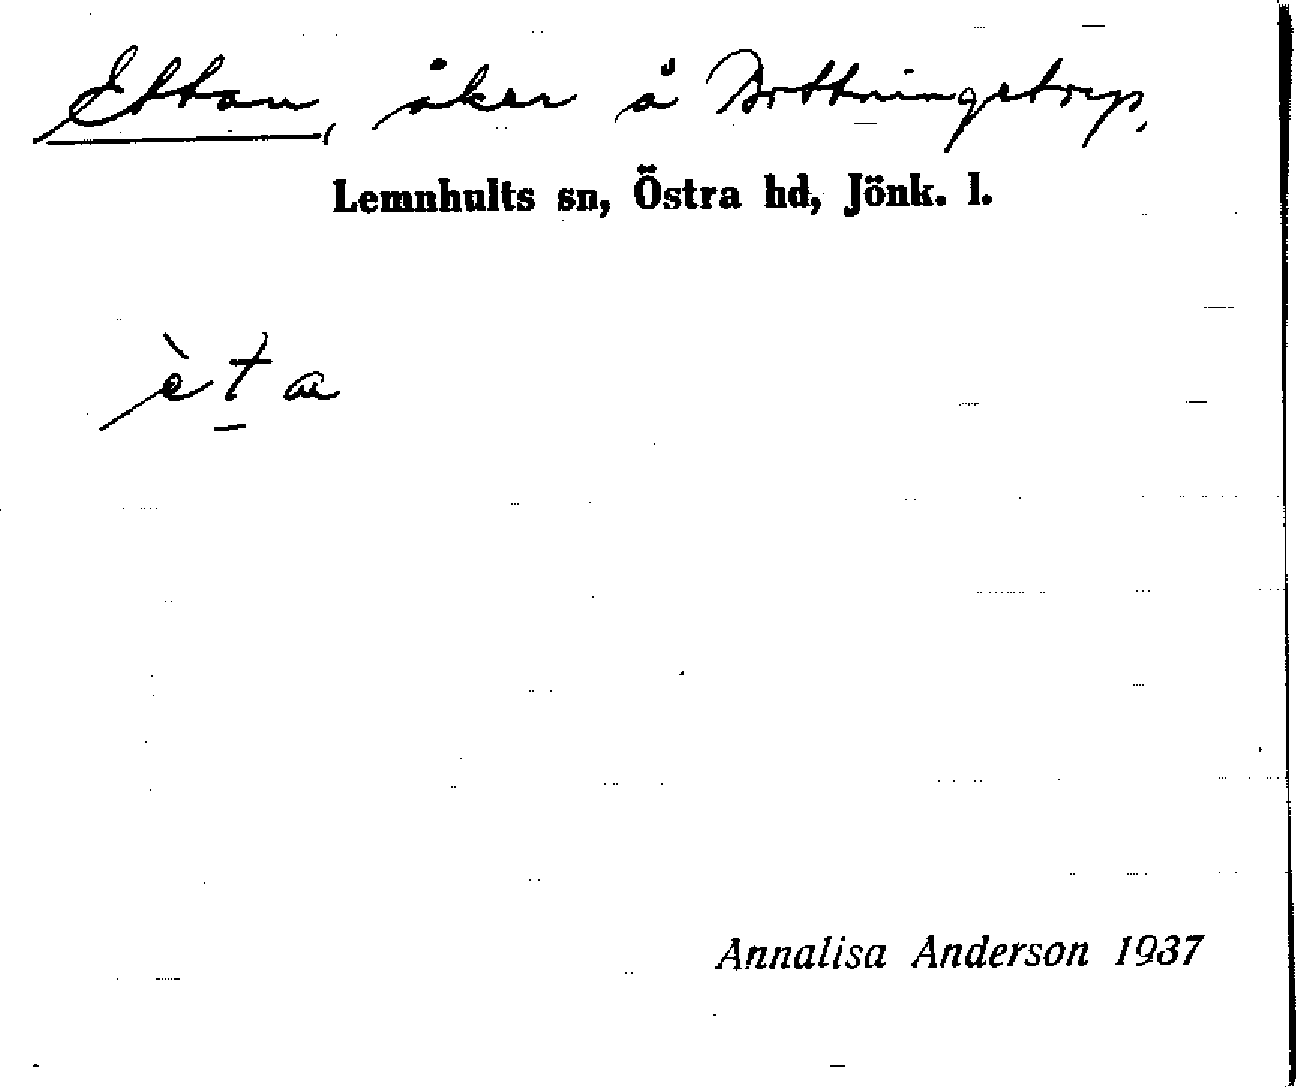 Ettan, åker å Drottningetorp.
Lemnhults sn, Östra hd, Jönk. l.
èta
Annalisa Anderson 1937